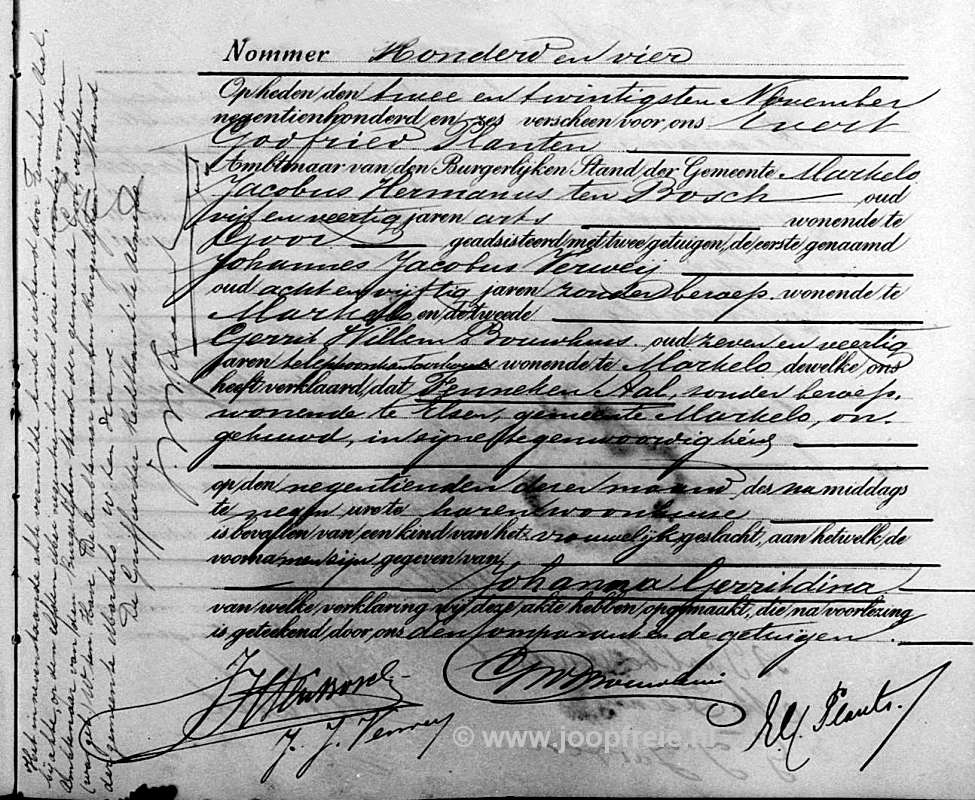 Nommer Honderd en vier
Op heden den twee en twintigsten November
negentienhonderd en zes verscheen voor ons Evert
Godfried Planten
Ambtenaar van den Burgerlijken Stand der Gemeente Markelo
Jacobus Hermanus ten Bosch oud
vijf en veertig jaren arts wonende te
Goor geadsisteerd met twee getuigen, de eerste genaamd
Johannes Jacobus Verweij
oud acht en vijftig jaren zonder beroep wonende te
Markelo en de tweede
Gerrit Willem Bouwhuis oud zeven en veertig
jaren telephoonkantoorhouder wonende te Markelo dewelke ons
heeft verklaard, dat Jenneken Aal, zonder beroep,
wonende te Elsen, gemeente Markelo, on-
gehuwd, in zijne tegenwoordigheid
op den negentienden dezer maand des na middags
te negen ure te haren woonhuize
is bevallen van een kind van het vrouwelijk geslacht, aan hetwelk de
voornamen zijn gegeven van
Johanna Gerritdina
van welke verklaring wij deze akte hebben opgemaakt, die na voorlezing
is geteekend door ons den comparant en de getuigen.
JH ten Bosch
J. J. Verweij
GW Bouwhuis
E.G. Planten.
Het in nevenstaande akte vermelde kind is erkend door Jenneken Aal
bij akte, voor den negentienhonderd drie en twintig voor den
Ambtenaar van den burgerlijken stand der gemeente Goor, verleden
(w.a.s. get.) W ten Have. De Ambtenaar van den burgerlijken stand
der gemeente Markelo w. ten Have
De Griffier der Rechtbank te Almelo
© www.joopfreie.nl